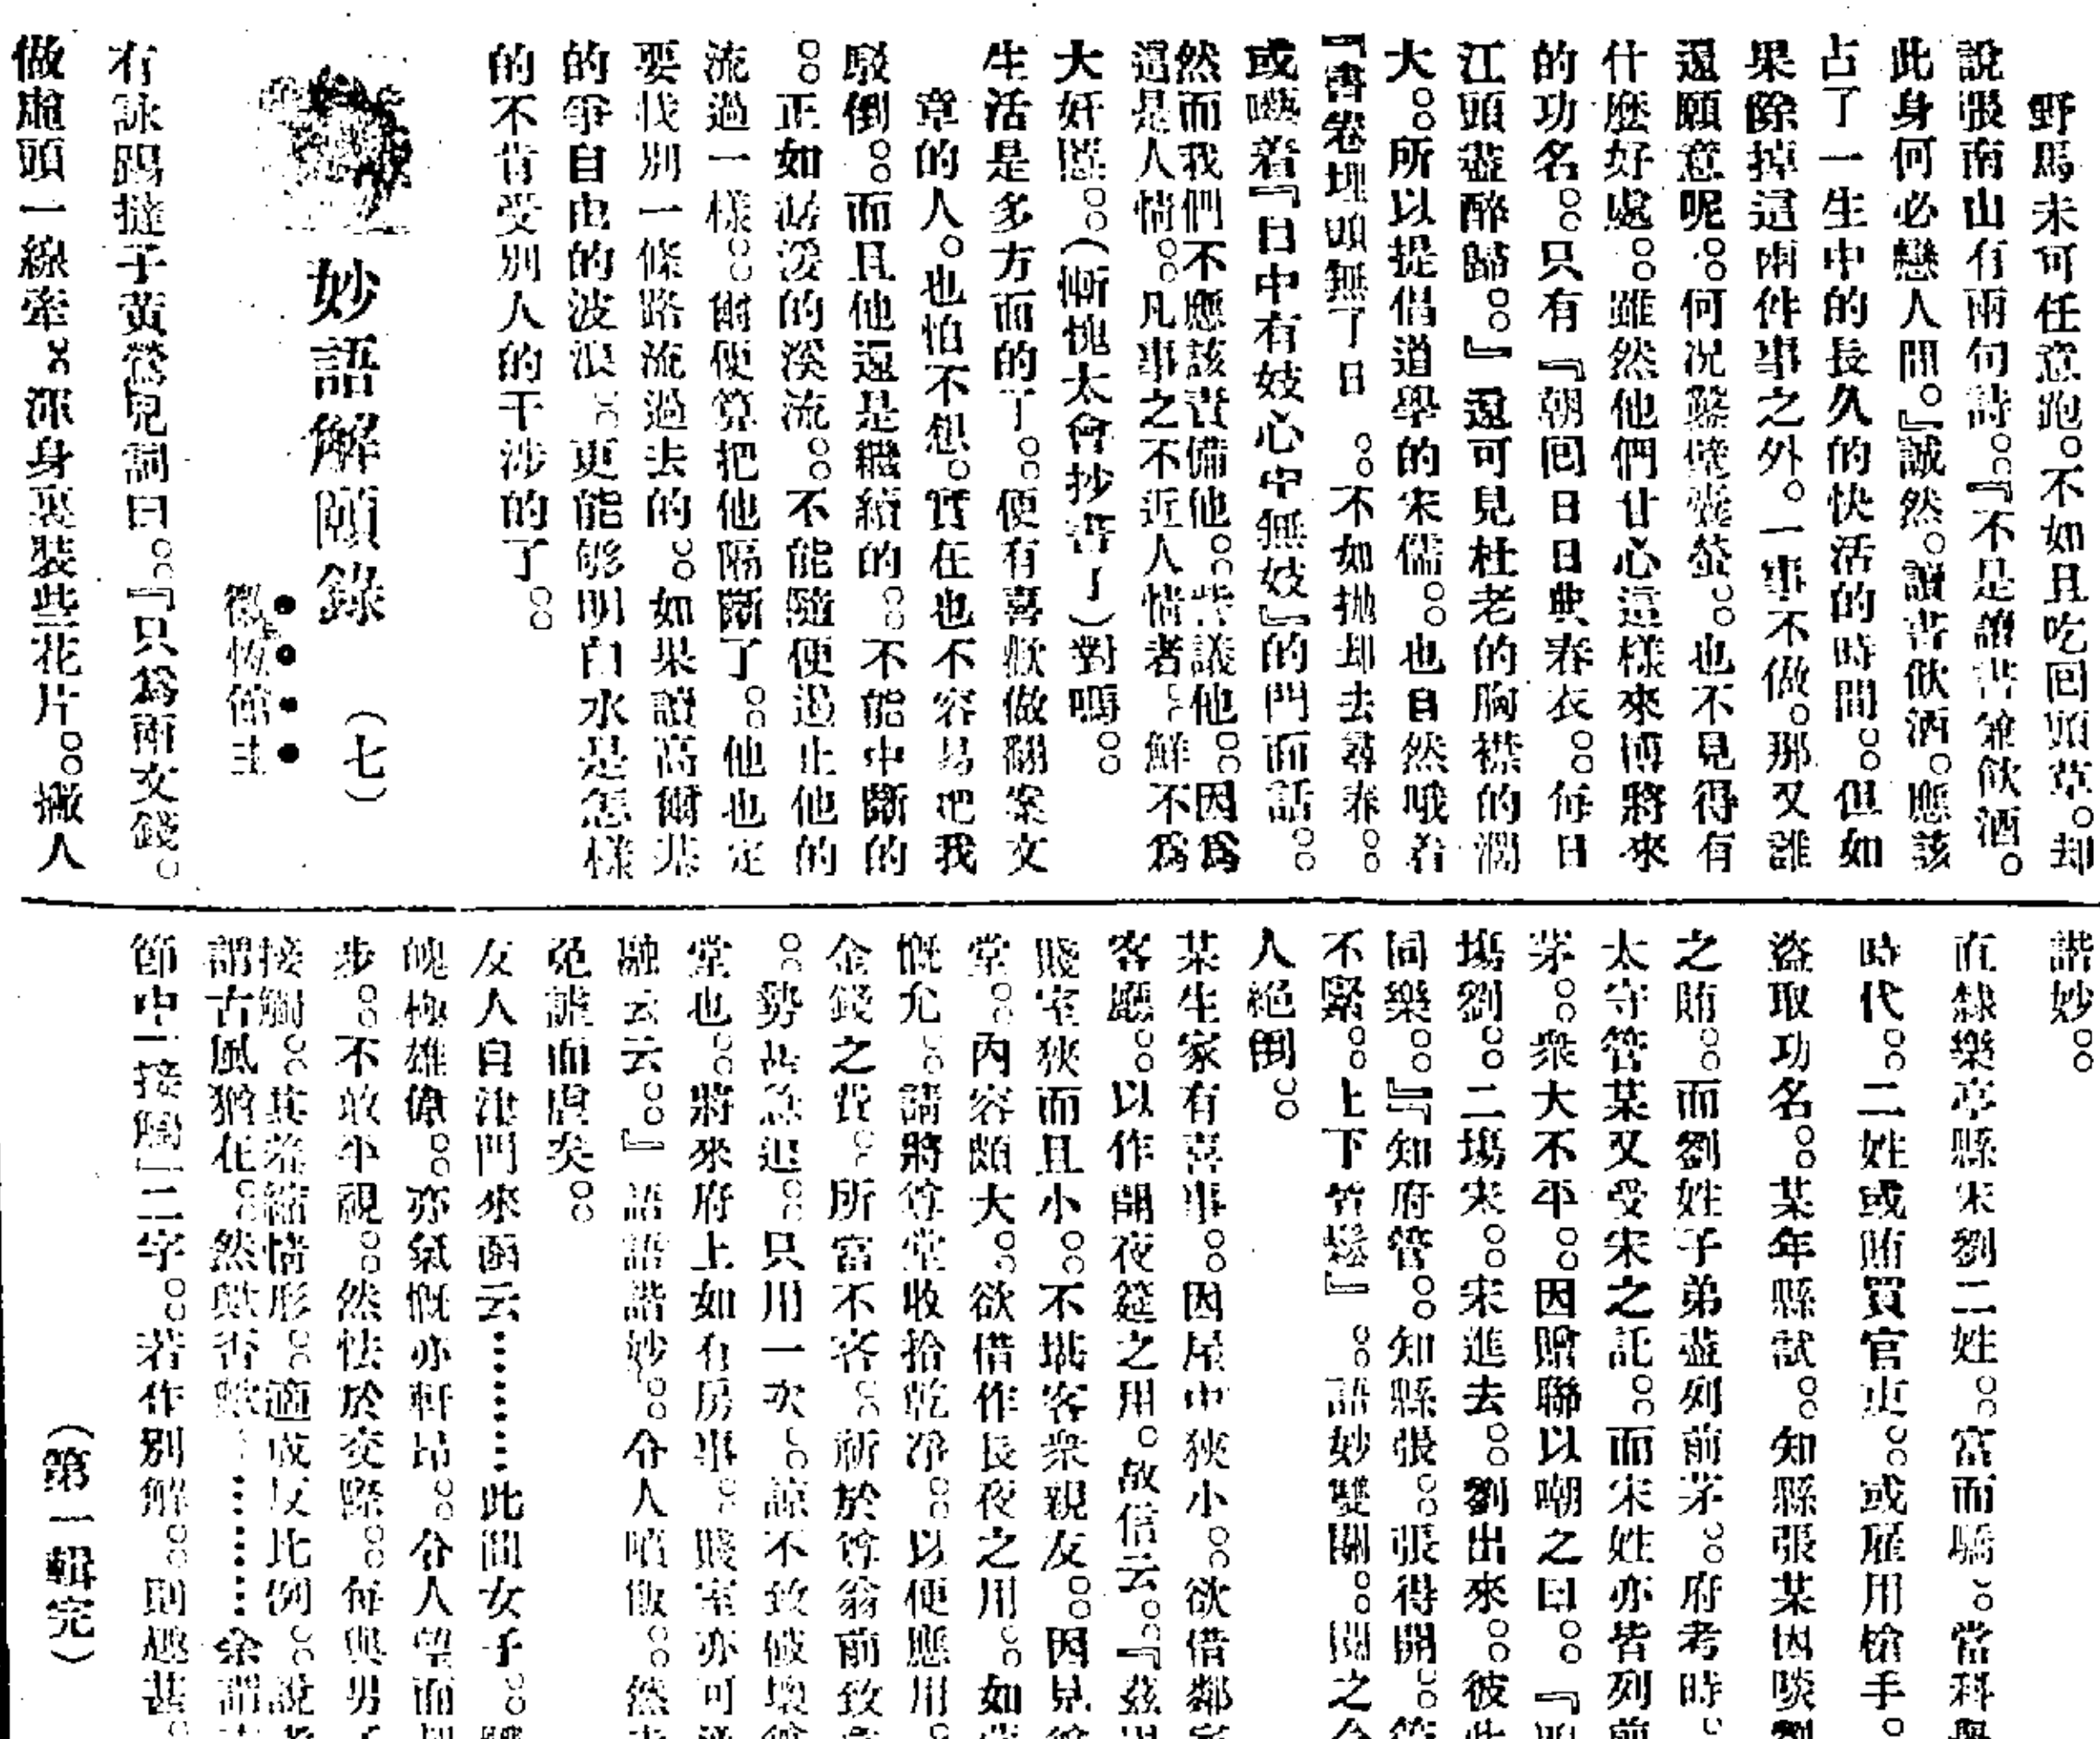 野馬未可任意跑。不如且吃回頭草。却
說張南山有兩句詩。。『不是讀書兼飲酒。
此身何必戀人間。』誠然。讀書飲酒。應該
占了一生中的長久的快活的時間。。但如
果除掉這兩件事之外。一事不做。那又誰
還願意呢。。何况鑿壁囊螢。。也不見得有
什麽好處。。雖然他們甘心這樣來博將來
的功名。。只有『朝囘日日典春衣。。每日
江頭盡醉歸。。』還可見杜老的胸襟的濶
大。。所以提倡道學的宋儒。。也自然哦着
『書卷埋頭無了日。。不如抛却去尋春。。
或嚷着『目中有妓心中無妓』的門面話。。
然而我們不應該責備他。。訾議他。。因爲
這是人情。。凡事之不近人情者。。鮮不爲
大奸慝。。（慚愧太會抄書了）對嗎。。
生活是多方面的了。。便有喜歡做翻案文
章的人。也怕不想。實在也不容易吧我
駁倒。。而且他還是繼續的。。不能中斷的
。。正如潺湲的溪流。。不能隨便遏止他的
流過一樣。。爾便算把他隔斷了。。他也定
要伐別一條路流過去的。。如果讀高爾基
的爭自由的波浪。。更能够明白水是怎樣
的不肯受別人的干涉的了。。
妙語解頤錄（七）
館主
右詠踢撻子黃鶯兒詞曰。。『只爲兩文錢。
做虛頭一線牽。。渾身裏裝些花片。。撇人
諧妙。。
直隸樂亭縣宋劉二姓。。富而驕。。當科
時代。。二姓或賄買官吏。。或雇用槍手。
盜取功名。。某年縣試。。知縣張某因啖劉
之賄。。而劉姓子弟盡列前茅。。府考時。
太守管某又受宋之託。。而宋姓亦皆列前
茅。。衆大不平。。因贈聯以嘲之曰。。『頭
塲劉。。二塲宋。。宋進去。。劉出來。。彼此
同樂。。』『知府管。。知縣張。。張得開。。管
不緊。。上下皆鬆』。。語妙雙關。。聞之令
人絕倒。。
某生家有喜事。。因屋中狹小。。欲借鄰家
客廳。。以作開夜筵之用。故信云。。『茲因
賤室狹而且小。。不堪客衆親友。。因見
堂。。內容頗大。。欲借作長夜之用。。如
慨允。。請將尊堂收拾乾淨。。以便應用。
金錢之費。。所當不吝。。祈於尊翁前致
。。勢甚急迫。。只用一次。。諒不致破壞
堂也。。將來府上如有房事。。賤室亦可
融云云。。』語語諧妙。。令人噴飯。。然
免謔而虐矣。。
友人自津門來函云⋯⋯⋯此間女子。。
魄極雄偉。。亦氣慨亦軒昂。。令人望而
步。。不敢平視。。然怯於交際。。每與男子
接觸。。其羞縮情形。。適成反比例。。說者
謂古風猶在。。然歟否歟。⋯⋯⋯余謂
節中「接觸」二字。。若作別解。。則趣甚。
（第一輯完）